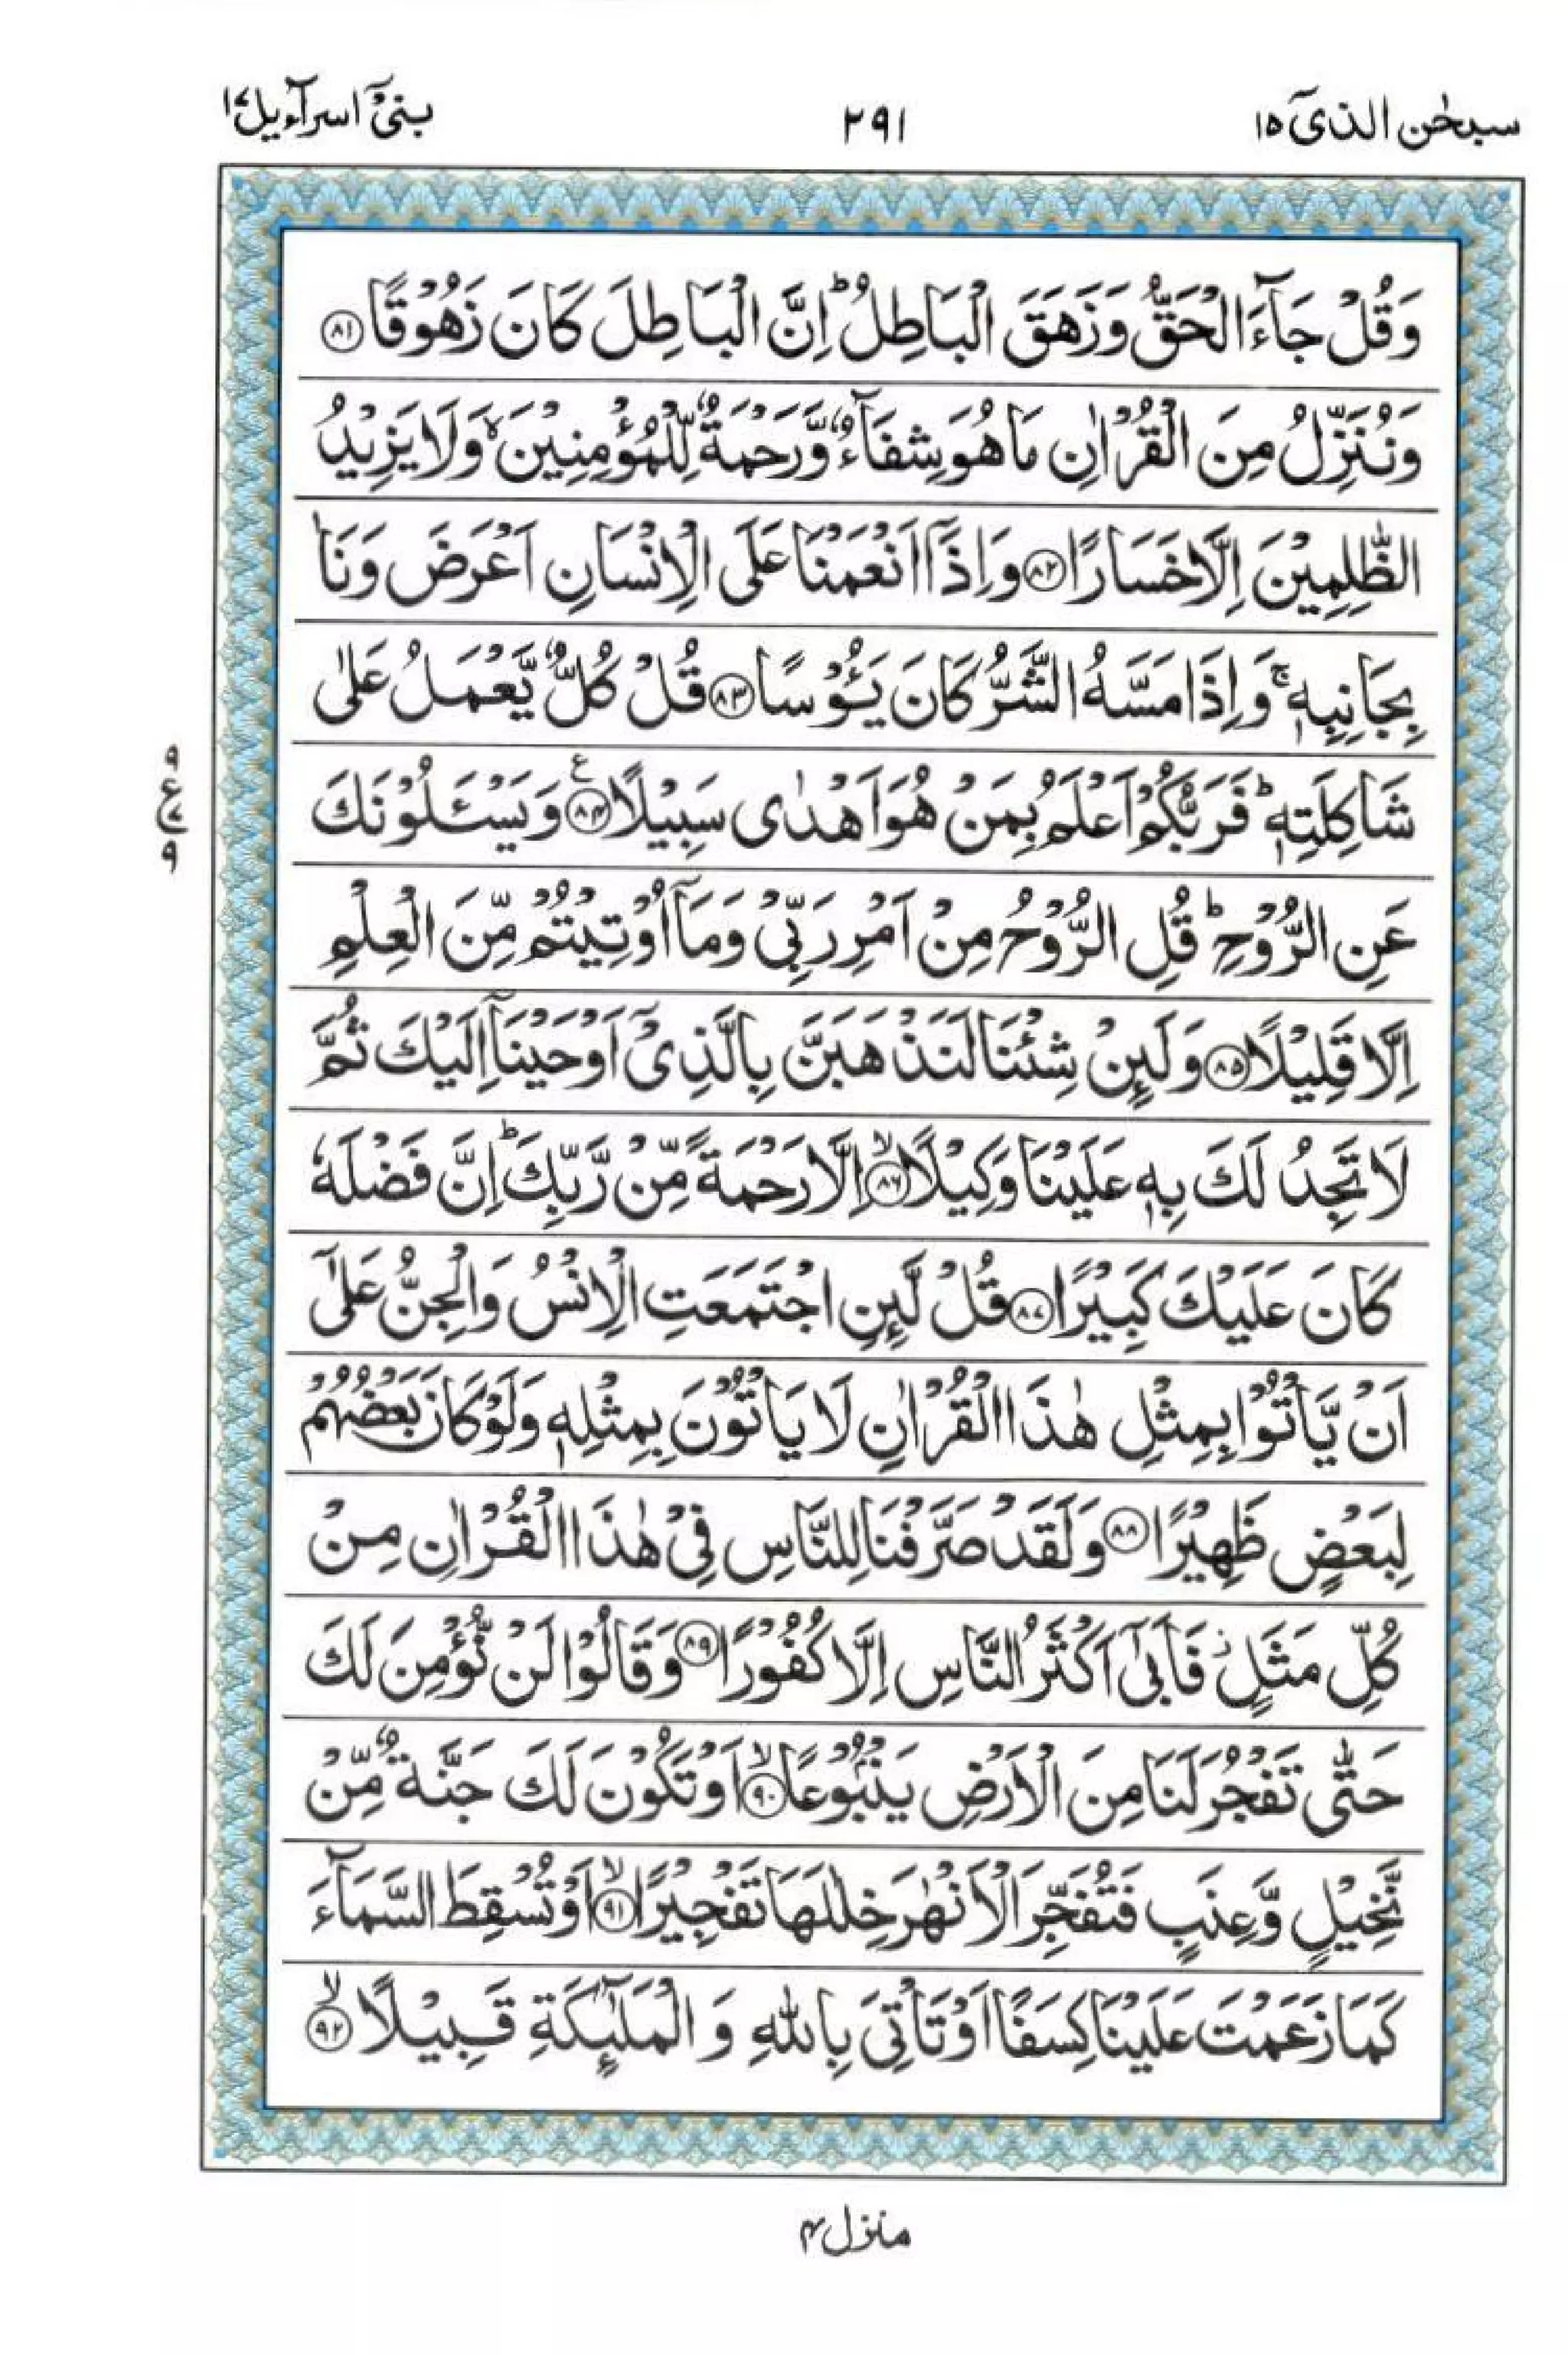 سبحٰن الذیٓ ۱۵ ۲۹۱ بنیٓ اسرآءیل ۱۷
وَقُلْ جَآءَ الْحَقُّ وَزَهَقَ الْبَاطِلُ ؕ اِنَّ الْبَاطِلَ كَانَ زَهُوْقًا ﴿۸۱﴾
وَنُنَزِّلُ مِنَ الْقُرْاٰنِ مَا هُوَ شِفَآءٌ وَّرَحْمَةٌ لِّلْمُؤْمِنِيْنَ ۙ وَلَا يَزِيْدُ
الظّٰلِمِيْنَ اِلَّا خَسَارًا ﴿۸۲﴾ وَاِذَآ اَنْعَمْنَا عَلَى الْاِنْسَانِ اَعْرَضَ وَنَاٰ
بِجَانِبِهٖ ۚ وَاِذَا مَسَّهُ الشَّرُّ كَانَ يَـُٔوْسًا ﴿۸۳﴾ قُلْ كُلٌّ يَّعْمَلُ عَلٰى
شَاكِلَتِهٖ ؕ فَرَبُّكُمْ اَعْلَمُ بِمَنْ هُوَ اَهْدٰى سَبِيْلًا ﴿۸۴﴾ ع وَيَسْـَٔلُوْنَكَ
۹
ع
۸
۹
عَنِ الرُّوْحِ ؕ قُلِ الرُّوْحُ مِنْ اَمْرِ رَبِّىْ وَمَآ اُوْتِيْتُمْ مِّنَ الْعِلْمِ
اِلَّا قَلِيْلًا ﴿۸۵﴾ وَلَىِٕنْ شِئْنَا لَنَذْهَبَنَّ بِالَّذِىْٓ اَوْحَيْنَآ اِلَيْكَ ثُمَّ
لَا تَجِدُ لَكَ بِهٖ عَلَيْنَا وَكِيْلًا ﴿۸۶﴾ ۙ اِلَّا رَحْمَةً مِّنْ رَّبِّكَ ؕ اِنَّ فَضْلَهٗ
كَانَ عَلَيْكَ كَبِيْرًا ﴿۸۷﴾ قُلْ لَّىِٕنِ اجْتَمَعَتِ الْاِنْسُ وَالْجِنُّ عَلٰٓى
اَنْ يَّاْتُوْا بِمِثْلِ هٰذَا الْقُرْاٰنِ لَا يَاْتُوْنَ بِمِثْلِهٖ وَلَوْ كَانَ بَعْضُهُمْ
لِبَعْضٍ ظَهِيْرًا ﴿۸۸﴾ وَلَقَدْ صَرَّفْنَا لِلنَّاسِ فِىْ هٰذَا الْقُرْاٰنِ مِنْ
كُلِّ مَثَلٍ ؗ فَاَبٰٓى اَكْثَرُ النَّاسِ اِلَّا كُفُوْرًا ﴿۸۹﴾ وَقَالُوْا لَنْ نُّؤْمِنَ لَكَ
حَتّٰى تَفْجُرَ لَنَا مِنَ الْاَرْضِ يَنْۢبُوْعًا ﴿۹۰﴾ ۙ اَوْ تَكُوْنَ لَكَ جَنَّةٌ مِّنْ
نَّخِيْلٍ وَّعِنَبٍ فَتُفَجِّرَ الْاَنْهٰرَ خِلٰلَهَا تَفْجِيْرًا ﴿۹۱﴾ ۙ اَوْ تُسْقِطَ السَّمَآءَ
كَمَا زَعَمْتَ عَلَيْنَا كِسَفًا اَوْ تَاْتِىَ بِاللّٰهِ وَ الْمَلٰٓىِٕكَةِ قَبِيْلًا ﴿۹۲﴾ ۙ
منزل ۴